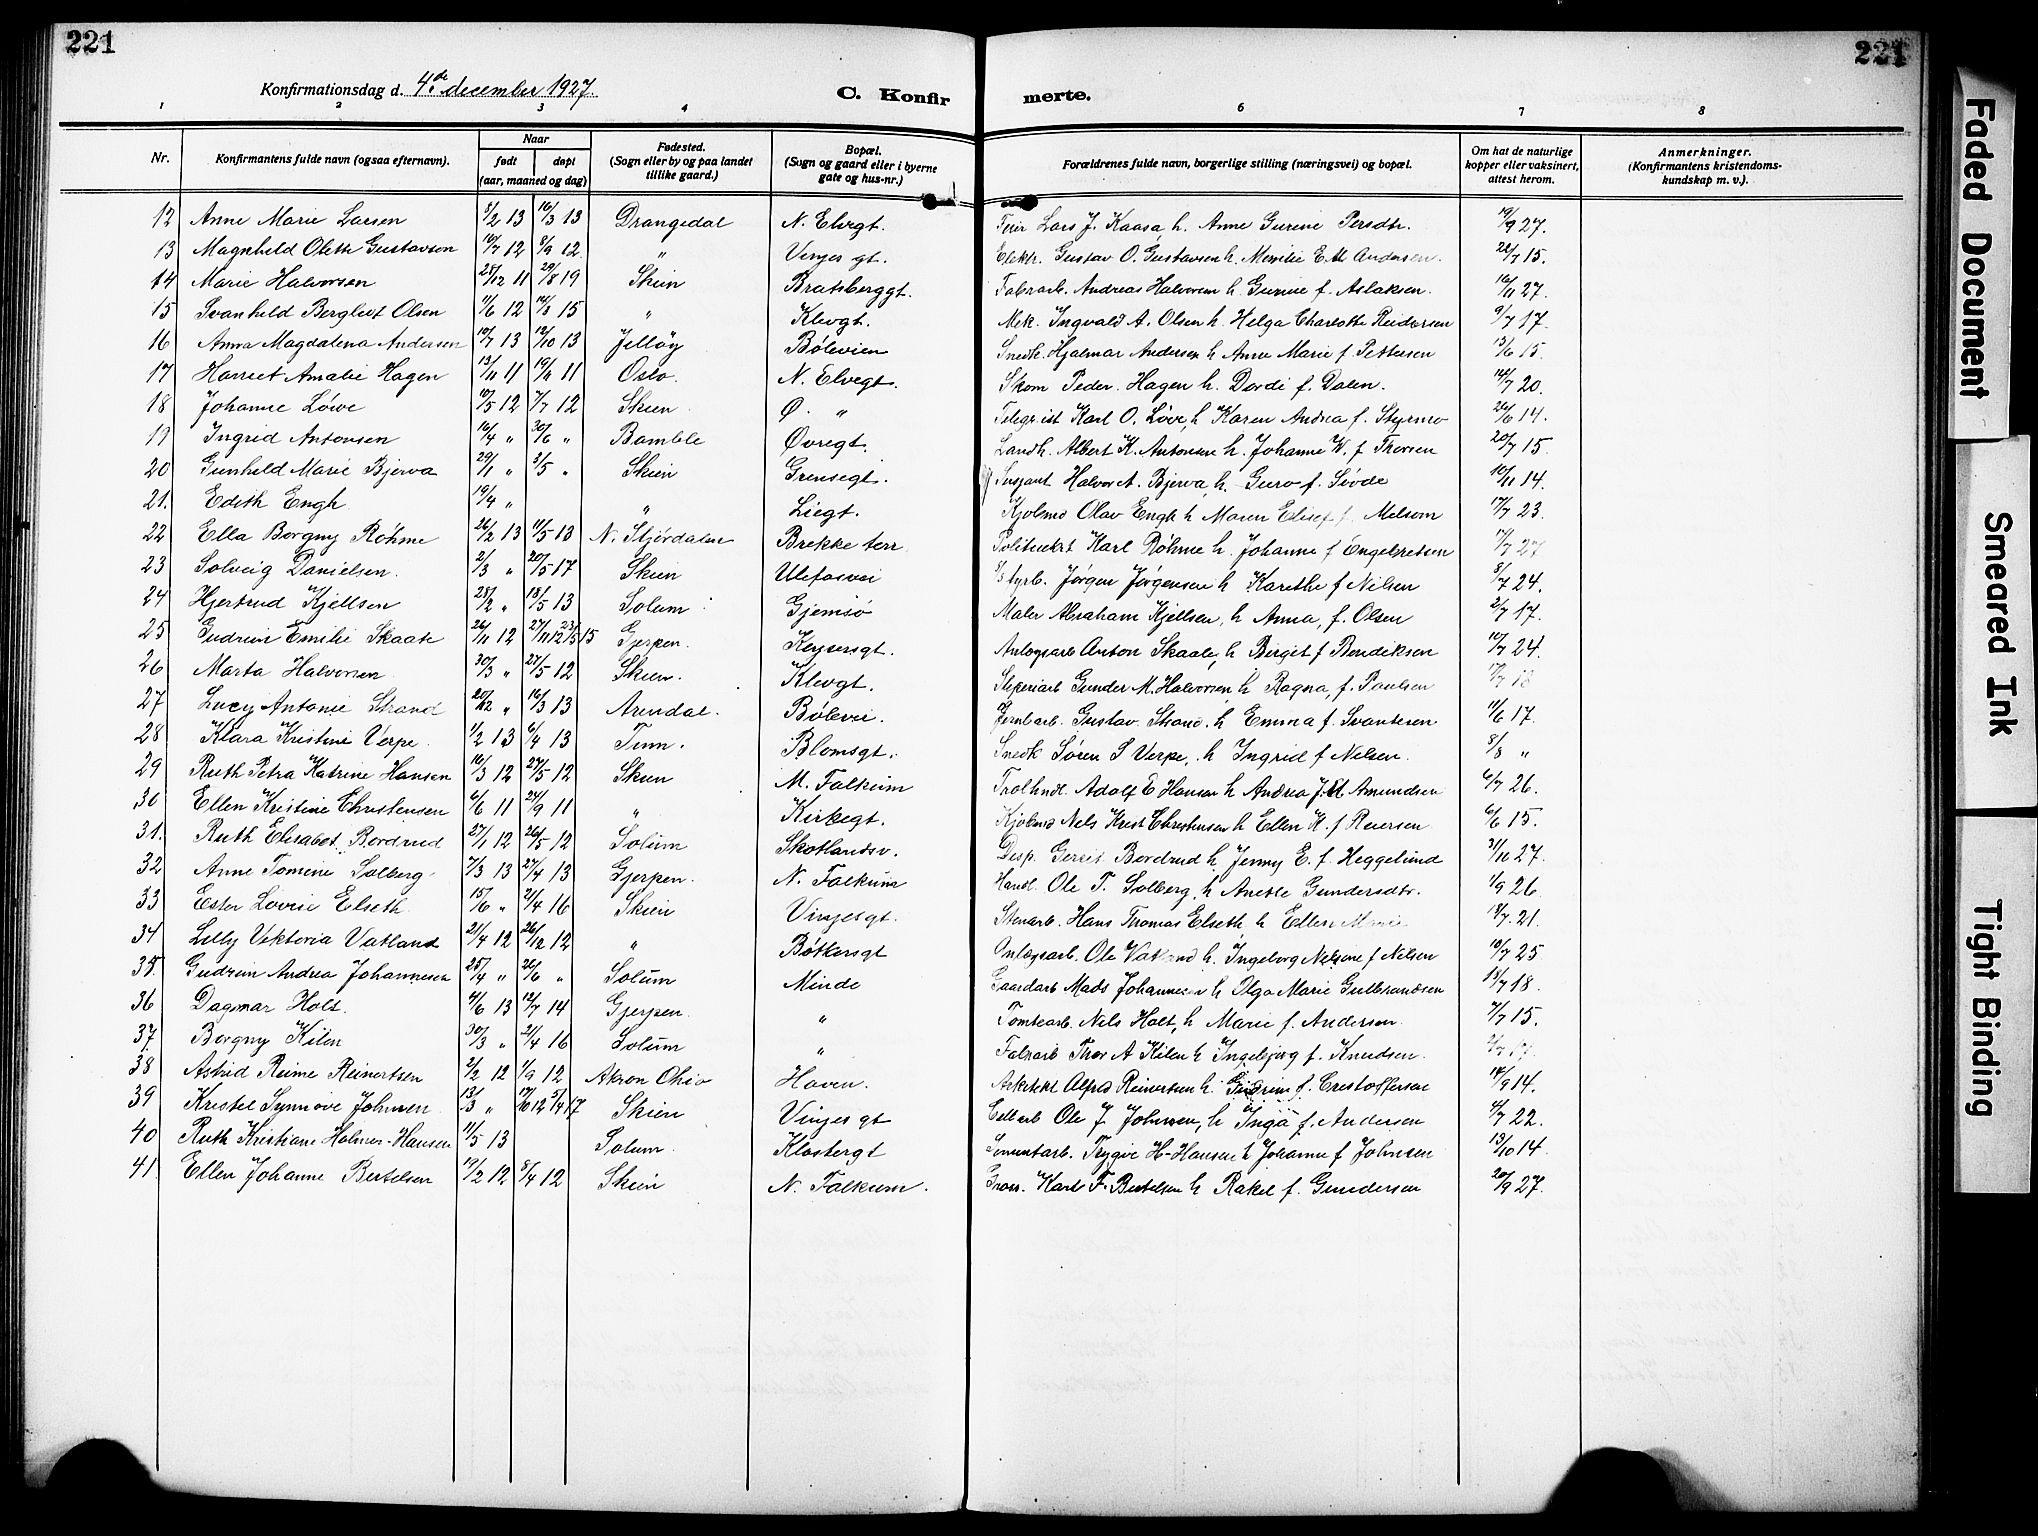 221
221
Konfirmationsdag d. 4de december 1927.
C. Konfir merte.
1 2 3 4 6 7 8
Nr. Konfirmantens fulde navn (ogsaa efternavn). Naar født døpt (aar, maaned og dag) Fødested. (Sogn eller by og paa landet tillike gaard.) Bopæl. (Sogn og gaard eller i byerne gate og hus-nr.) Forældrenes fulde navn, borgerlige stilling (næringsvei) og bopæl. Om hat de naturlige kopper eller vaksinert, attest herom. Anmerkninger. (Konfirmantens kristendomskundskap m. v.).
12 Anne Marie Larsen 8/2 13 16/3 13 Drangedal N. Elvegt. Feier Lars J. Kaasa h. Anne Gurine Persdtr. 19/9 27.
13 Magnhild Olette Gustavsen 16/7 12 8/9 12 " Vinjes gt. Elektr. Gustav O. Gustavsen h. E. M Andersen. 28/7 15.
14 Marie Halvorsen 28/12 11 29/8 19 Skien Bratsberggt. Fabrarb. Andreas Halvorsen h. Gurine f. Aslaksen. 16/11 27.
15 Svanhild Bergliot Olsen 11/6 12 15 " Klevgt. Mek. Ingvald A. Olsen h. Helga Charlotte Reidersen 9/7 17.
16 Anna Magdalena Andersen 10/7 13 12/10 13 Jelløy Bøleveien Snedk. Hjalmar Andersen h Anne Marie f. Pettersen 13/6 15.
17 Harriet Amalie Hagen 13/11 11 11 Oslo. N. Elvegt. Skom Peder Hagen h. Dordi f. Dalen. 14/7 20.
18 Johanne Løwe 10/5 12 7/7 12 Skien Ø. " Telegr.ist Karl O. Løve, h Karen Andrea f. Styrmo 26/6 14.
19 Ingrid Antonsen 16/4 " 30/6 " Bamble Øvregt. Landh. Albert K. Antonsen h. Johanne W. f Thorsen 20/7 15.
20 Gunhild Marie Bjerva 29/1 " 3/5 " Skien Grensegt. Halvor A. Bjerva h. Guro f. Søvde 10/11 14.
21. Edith Engh 19/4 " " Liegt. Kjøbmd Olav Engh h Maren Elise f. Melsom 17/7 23.
22 Ella Borgny Røhme 26/2 13 11/5 13 N. Stjørdalen Brekke terr Karl Røhme h. Johanne f Engebretsen 17/7 27
23 Solveig Danielsen. 2/3 " 20/5 17 Skien Ulefosvei S/s fyrb. Jørgen Jørgensen h Karethe f Nilsen 8/7 24.
24 Hjertrud Kjellsen 28/2 " 18/5 13 Solum Gjemsø Maler Abraham Kjellsen, h Anna, f. Olsen 2/7 17.
25 Gudrun Emilie Skaate 26/11 12 27/11 12 23/5 15 Gjerpen. Keysersgt. Anlegsarb Anton Skaate, h Birget f Bendiksen 10/7 24.
26 Marta Halvorsen 30/3 " 27/5 12 Skien. Klevgt. Støperiarb Gunder M. Halvorsen h Ragna, f. Paulsen 17/7 18
27 Lucy Antonie Strand 20/12 " 16/3 13 Arendal. Bølevei. Jernbarb. Gustav Strand, h Emma f. Svantesen 11/6 17.
28 Klara Kristine Verpe. 1/2 13 6/4 13 Tinn. Blomsgt. Snedk Søren S Verpe, h Ingrid f Nilsen. 8/8 "
29 Ruth Petra Katrine Hansen 16/3 12 27/5 12 Skien M. Falkum Adolf E Hansen h Andrea J.M Amundsen 6/7 26.
30 Ellen Kristine Christensen 6/6 11 24/9 11 " Kirkegt. Kjøbmd Nels Krist Christensen h Ellen K. f Reiersen 6/6 15.
31. Ruth Elisabet Bordrud 27/1 12 26/5 12 Solum Skotlandsv. Disp. Bordrud h Jenny E. f. Heggelund 31/10 27.
32 Anne Tomine Solberg 7/3 13 27/4 13 Gjerpen. N. Falkum Handl. Ole T. Solberg, h Anette Gundersdtr. 1/9 26.
33 Ester Lovise Elseth 15/6 " 2/4 16 Skien Vinjesgt. Stenarb. Hans Thomas Elseth, h Ellen Marie 13/7 21.
34 Lilly Viktoria Vatland 21/4 12 26/12 12 " Bøtkersgt Anlægsarb. Ole Vatland h. Ingeborg Nelsine f Nelsen 19/7 25
35. Gudrun Andrea Johannesen 25/4 " 26/6 " Solum Minde Gaardarb Mads Johannesen h Olga Marie Gulbrandsen 15/7 18.
36 Dagmar Holt. 4/6 13 12/7 14 Gjerpen. " Tomtearb. Nils Holt, h Marie f. Andersen. 7/7 15.
37. Borgny Kilen 30/3 " 2/4 16 Solum " Fabrarb Thor A Kilen h Ingebjørg f. Knudsen.
38 Astrid Reime Reinertsen 2/2 12 1/9 12 Akron Ohio Haven. Arkitekt Alfred Reinertsen h. Gudrun f. Cristoffersen 14/9 14.
39 Kristel Synnøve Johnsen 13/3 " 17/10 12 5/4 17 Skien Vinjes gt Cellarb Ole J Johnsen, h Inga f. Andersen 4/7 22.
40 Ruth Kristiane Holmer-Hansen 11/5 13 Solum. Klostergt Sementarb. Trygve H-Hansen h Johanne f Johnsen 13/10 14.
41. Ellen Johanne Bertelsen 17/2 12 8/4 12 Skien N. Falkum. Gross. Karl F. Bertelsen h Rakel f. Gundersen 20/9 27.
Faded Document
Smeared Ink
Tight Binding